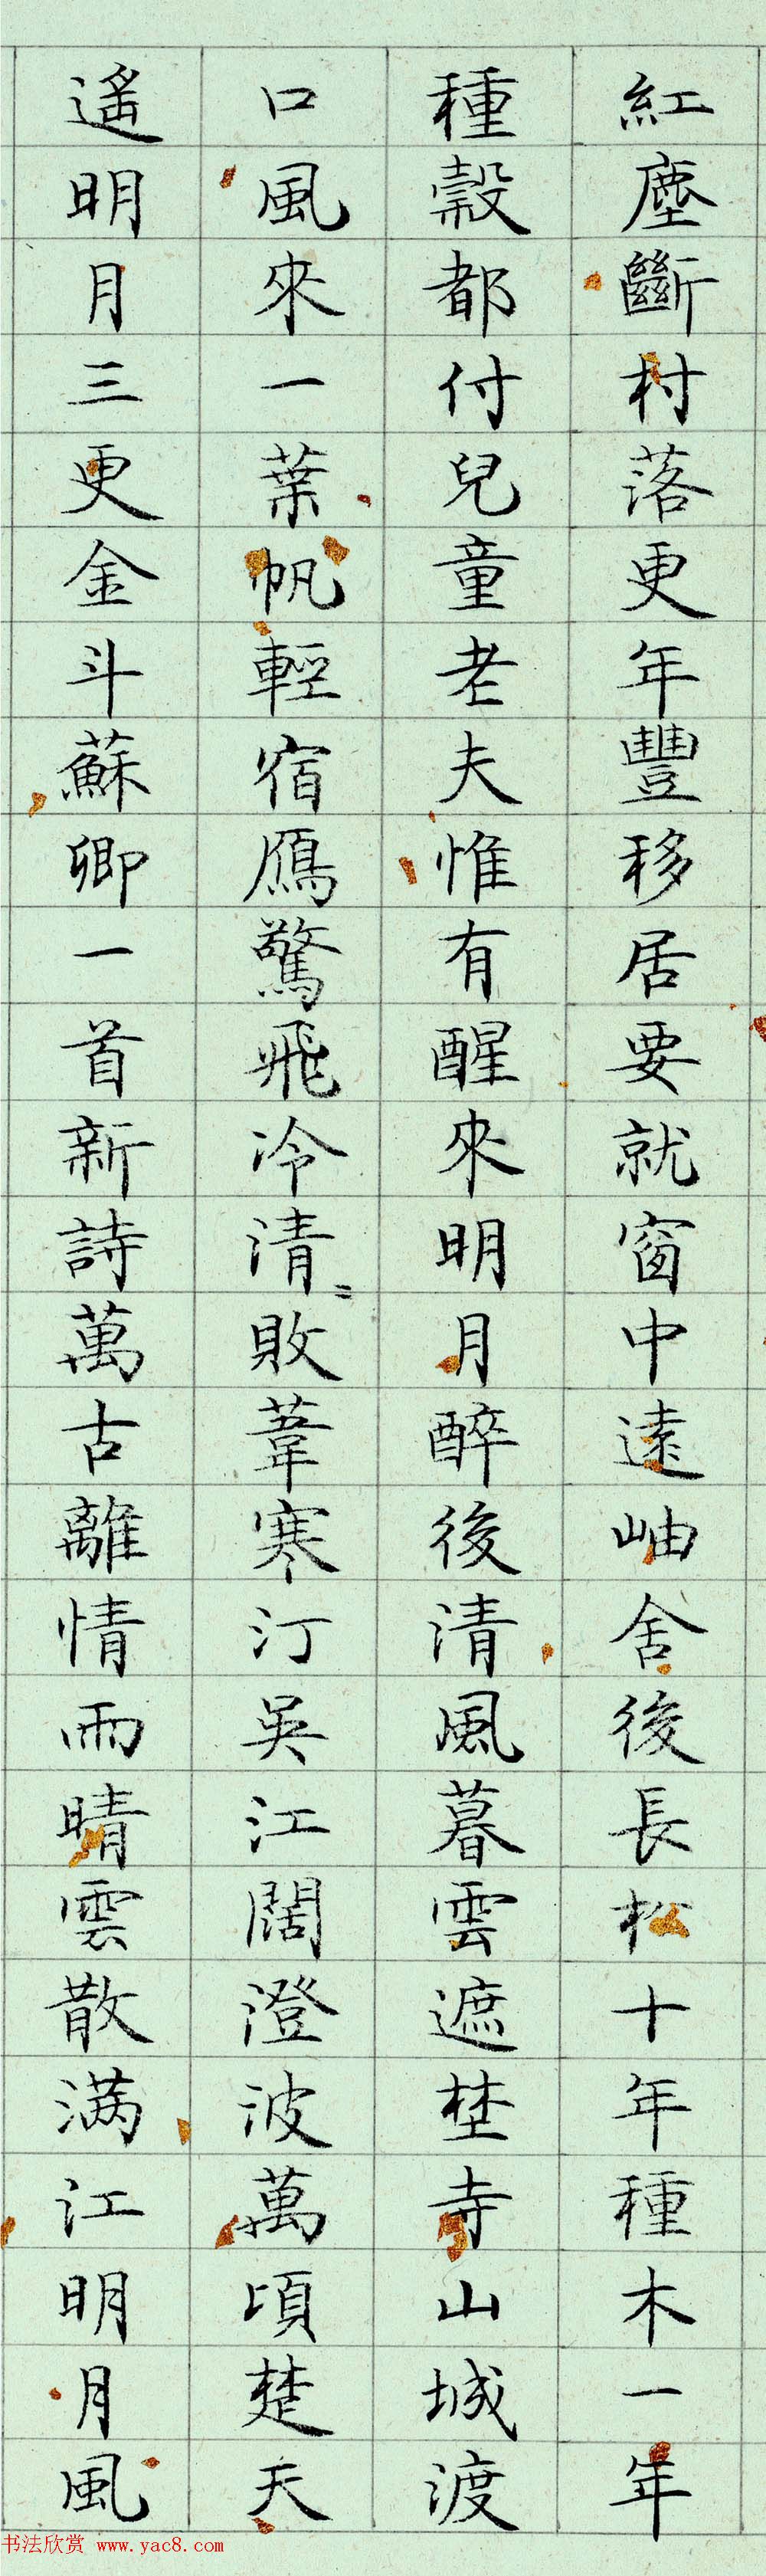 紅塵斷村落更年豐移居要就窗中遠岫舍後長松十年種木一年
種穀都付兒童老夫惟有醒來明月醉後清風暮雲遮埜寺山城渡
口風來一葉帆輕宿鴈驚飛冷清〻敗葦寒汀吳江闊澄波萬頃楚天
遙明月三更金斗蘇卿一首新詩萬古離情雨晴雲散满江明月風
书法欣赏 www.yac8.com